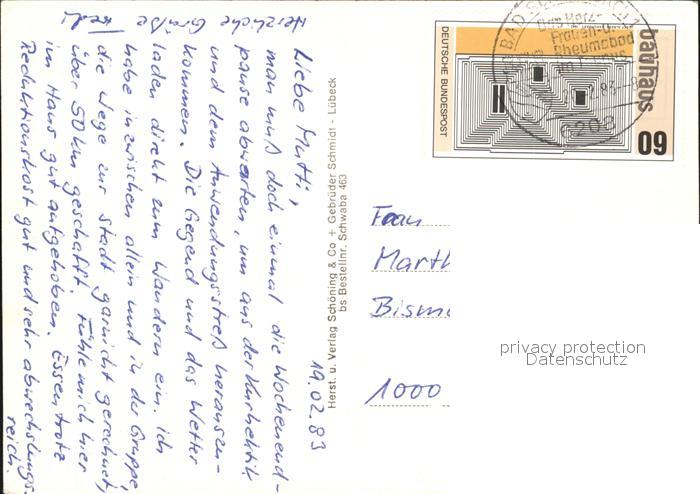 19.02.83
Liebe Mutti,
man muß doch einmal die Wochenend-
pause abwarten, um aus der Kurhektik
und dem Anwendungsstreß herauszu-
kommen. Die Gegend und das Wetter
laden direkt zum Wandern ein. ich
habe inzwischen allein und in der Gruppe,
die Wege zur Stadt garnicht gerechnet,
über 50 km geschafft. Fühle mich hier
im Haus gut aufgehoben. Essen trotz
Reduktionskost gut und sehr abwechslungs-
reich.
Herzliche Grüße
Herst. u. Verlag Schöning & Co + Gebrüder Schmidt - Lübeck
bs Bestellnr. Schwaba 463
DEUTSCHE BUNDESPOST
bauhaus
60
BAD
Das Herz-
Frauen-u.
Rheumabad
im Taunus
6208
Frau
Marth
Bism
1000
privacy protection
Datenschutz